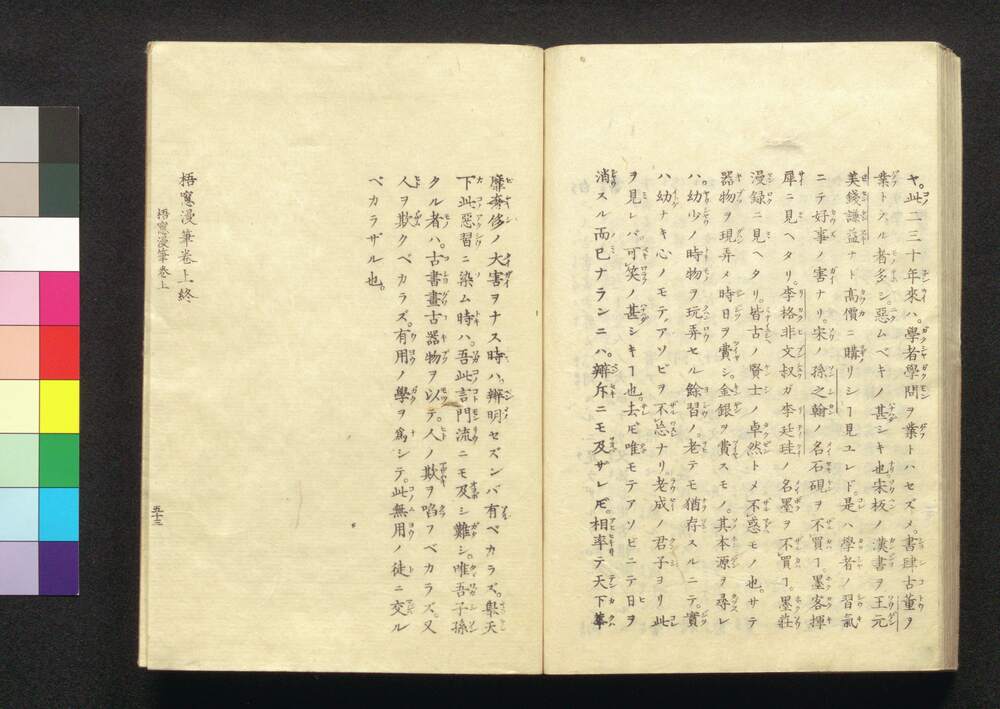 ヤ。此二三十年來ハ。學者學問ヲ業トハセズメ。書肆古董ヲ
業トスル者多シ。惡ムベキノ甚シキ也宋板ノ漢書ヲ王元
美錢謙益ナト高價ニ購リシヿ見ユレド。是ハ學者ノ習氣
ニテ好事ノ害ナリ。宋ノ孫之翰ノ名石硯ヲ不買ヿ。墨客揮
犀ニ見ヘタリ。李格非文叔ガ李廷珪ノ名墨ヲ不買ヿ。墨莊
漫録ニ見ヘタリ。皆古ノ賢士ノ卓然トメ不惑モノ也。サテ
器物ヲ現弄メ時日ヲ費シ。金銀ヲ費スモノ。其本源ヲ尋レ
ハ。幼少ノ時物ヲ玩弄セル餘習ノ老テモ猶存スルニテ。實
ハ幼ナキ心ノモテアソビヲ不忘ナリ。老成ノ君子ヨリ此
ヲ見レバ。可笑ノ甚シキヿ也。去𪜈唯モテアソビニテ日ヲ
消スル而已ナランニハ。辯斥ニモ及ザレ𪜈。相率テ天下華
靡奢侈ノ大害ヲナス時ハ。辯明セズンバ有ベカラズ。擧天
下此惡習ニ染ム時ハ。吾此言門流ニモ及シ難シ。唯吾子孫
タル者ハ。古書畫古器物ヲ以テ。人ノ欺ヲ蹈フベカラズ。又
人ヲ欺クベカラズ。有用ノ學ヲ爲シテ。此無用ノ徒ニ交ル
ベカラザル也。
梧窻漫筆卷上終
梧窻漫筆卷上
五十三